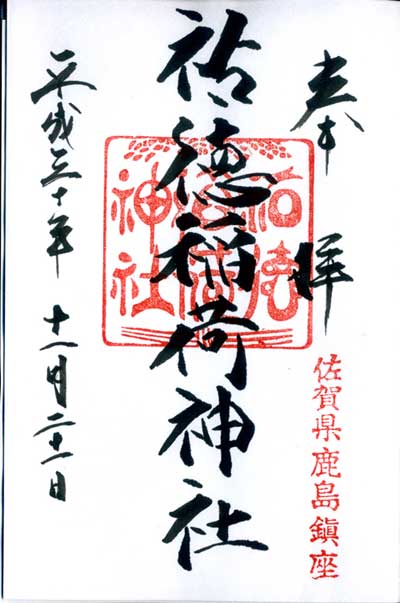 奉拝
佐賀県鹿島鎮座
祐徳稲荷神社
祐徳稲荷神社
平成三十年 十一月二十一日